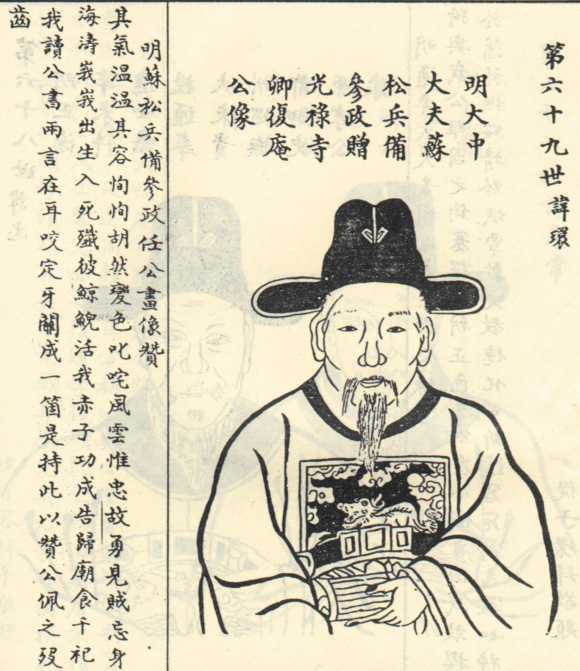 第六十九世諱環
明大中
大夫蘇
松兵備
參政贈
光祿寺
卿復庵
公像
明蘇松兵備參政任公畫像贊
其氣溫溫其容恂恂胡然變色叱咤風雲惟忠故勇見賊忘身
海濤峩峩出生入死殲彼鯨鯢活我赤子功成生歸廟食千祀
我讀公書兩言在耳咬定牙關成一箇是持此以贊公佩之歿
齒